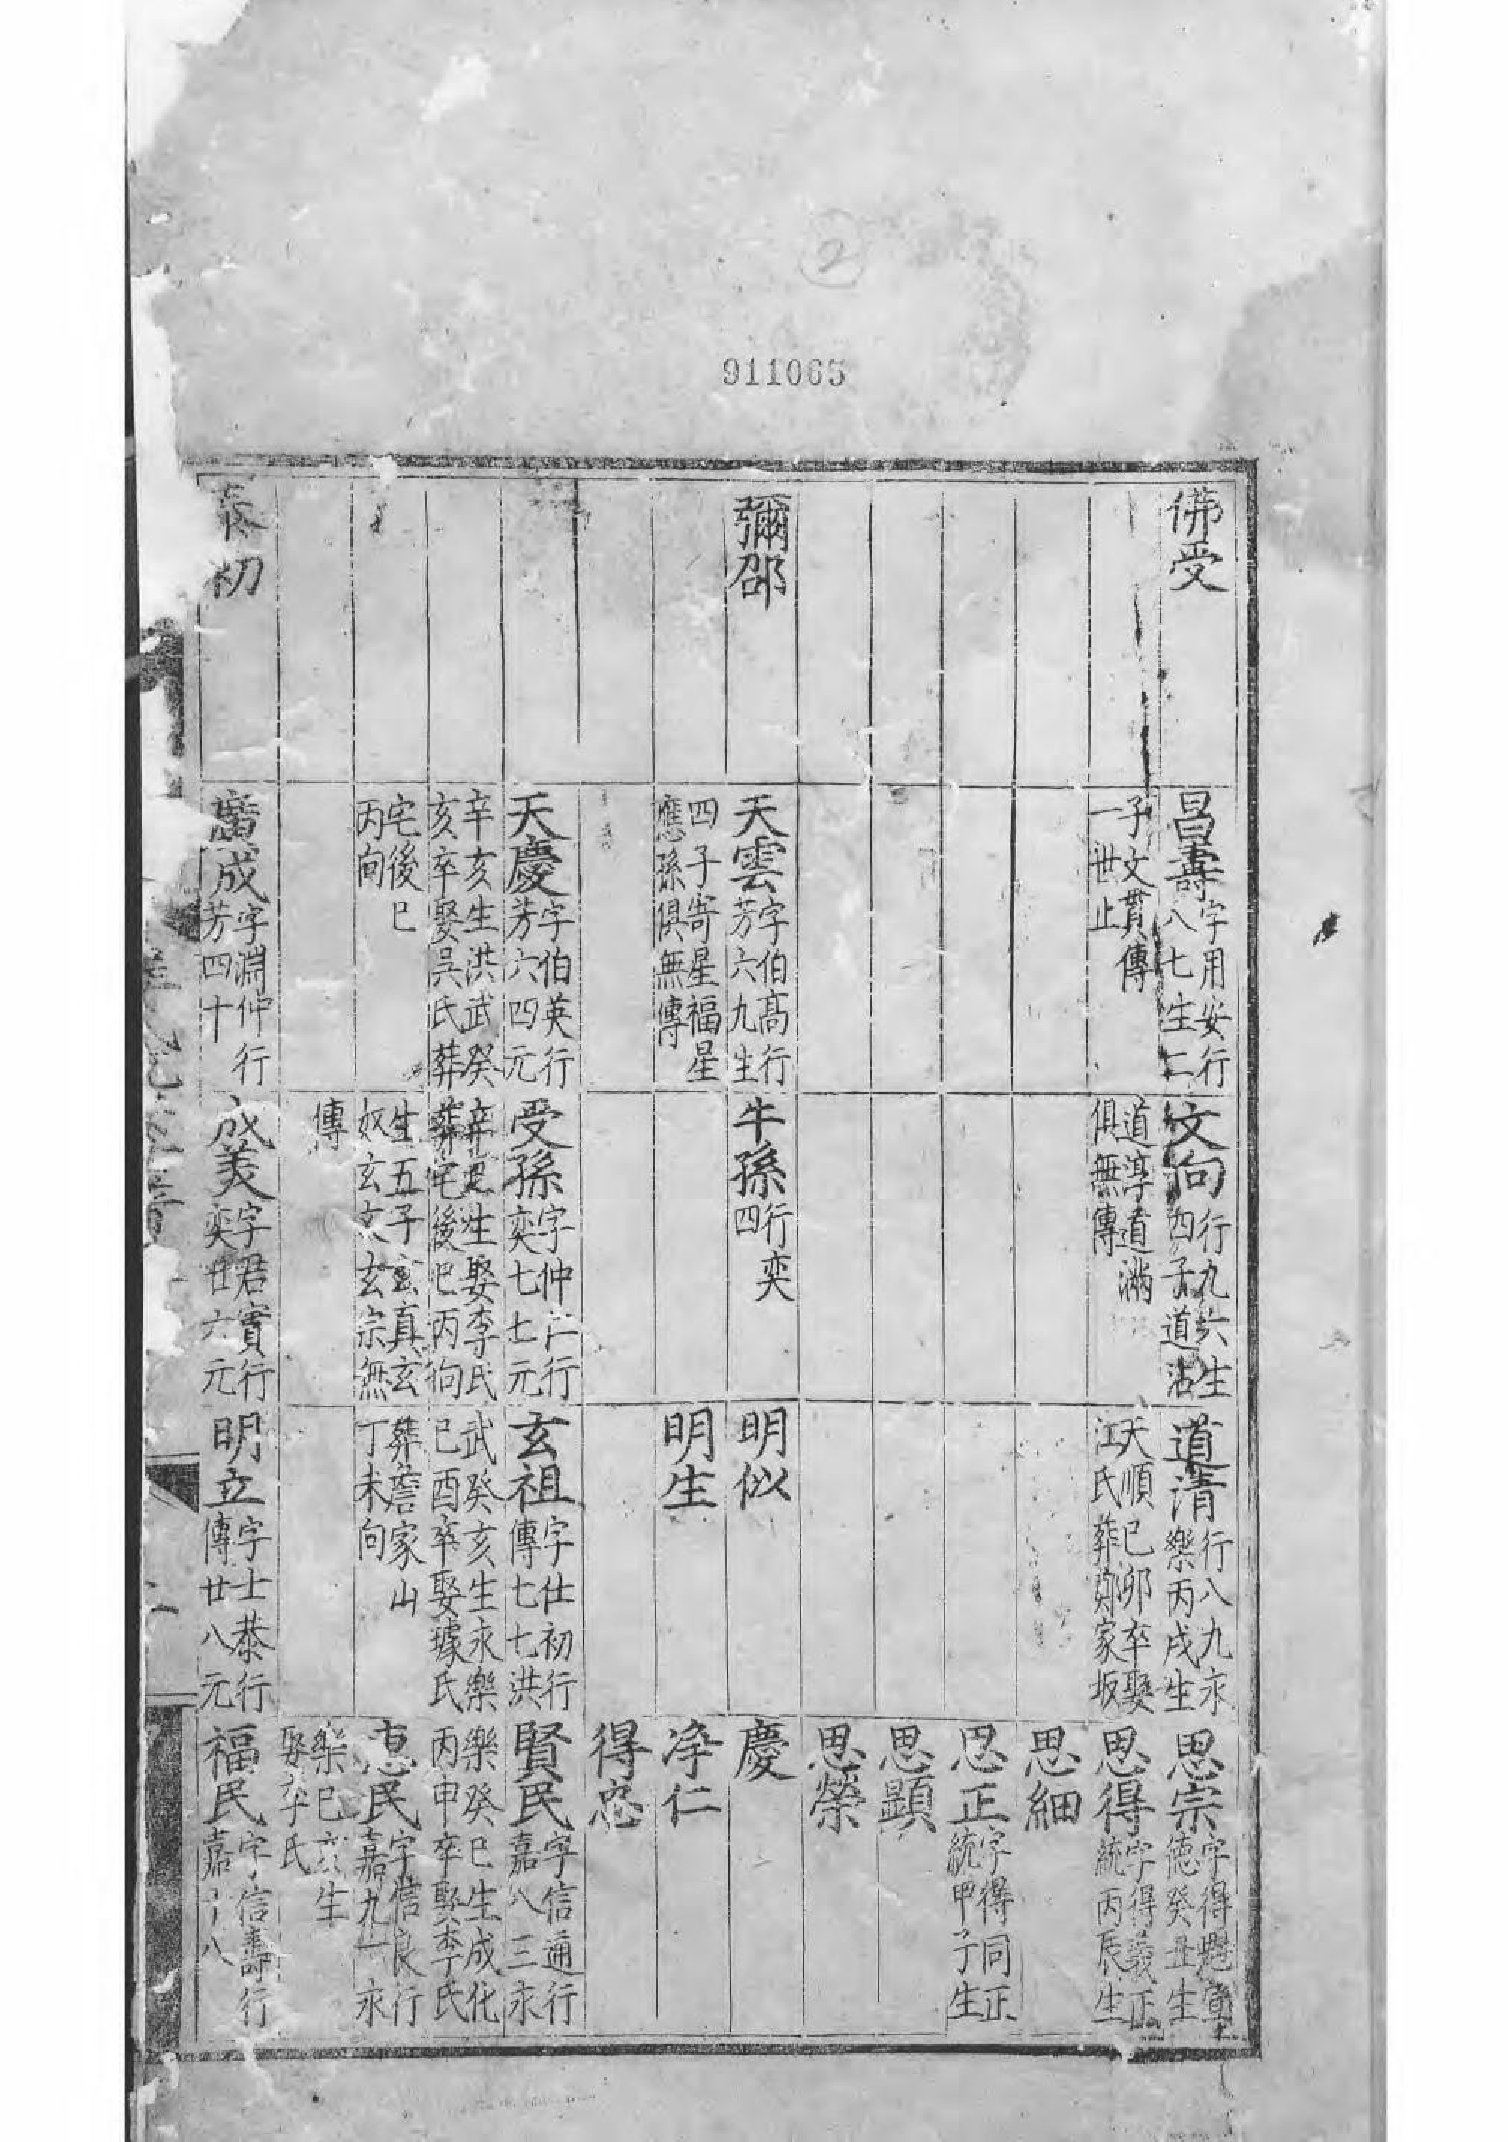 2
911065
佛受
彌邵
初
昌壽字用安行
八七生二
子文貫傳
一世止
天雲字伯高行
芳六九生
四子寄星福星
應孫俱無傳
天慶字伯英行
芳六四元
辛亥生洪武癸
亥卒娶吳氏葬
宅後巳
丙向
廣成字淵仲行
芳四十
文向行九六生
四子道沾
道淳道滿
俱無傳
牛孫行奕
四
受孫字仲仁行
奕七七元
生娶李氏
葬宅後巳丙向
生五子玄真玄
奴玄文玄宗無
傳
成美字君實行
奕廿六元
道清行八九永
樂丙戌生
天順己卯卒娶
江氏葬鄭家坂
明似
明生
玄祖字仕初行
傳七七洪
武癸亥生永樂
己酉卒娶璩氏
葬詹家山
丁未向
明立字士恭行
傳廿八元
思宗字得魁宣
德癸丑生
思得字得義正
統丙辰生
思細
思正字得同正
統甲子生
思顯
思榮
慶
淨仁
得忠
賢民字信通行
嘉八三永
樂癸巳生成化
丙申卒娶李氏
惠民字信良行
嘉九一永
樂巳亥生
娶李氏
福民字信壽行
嘉八